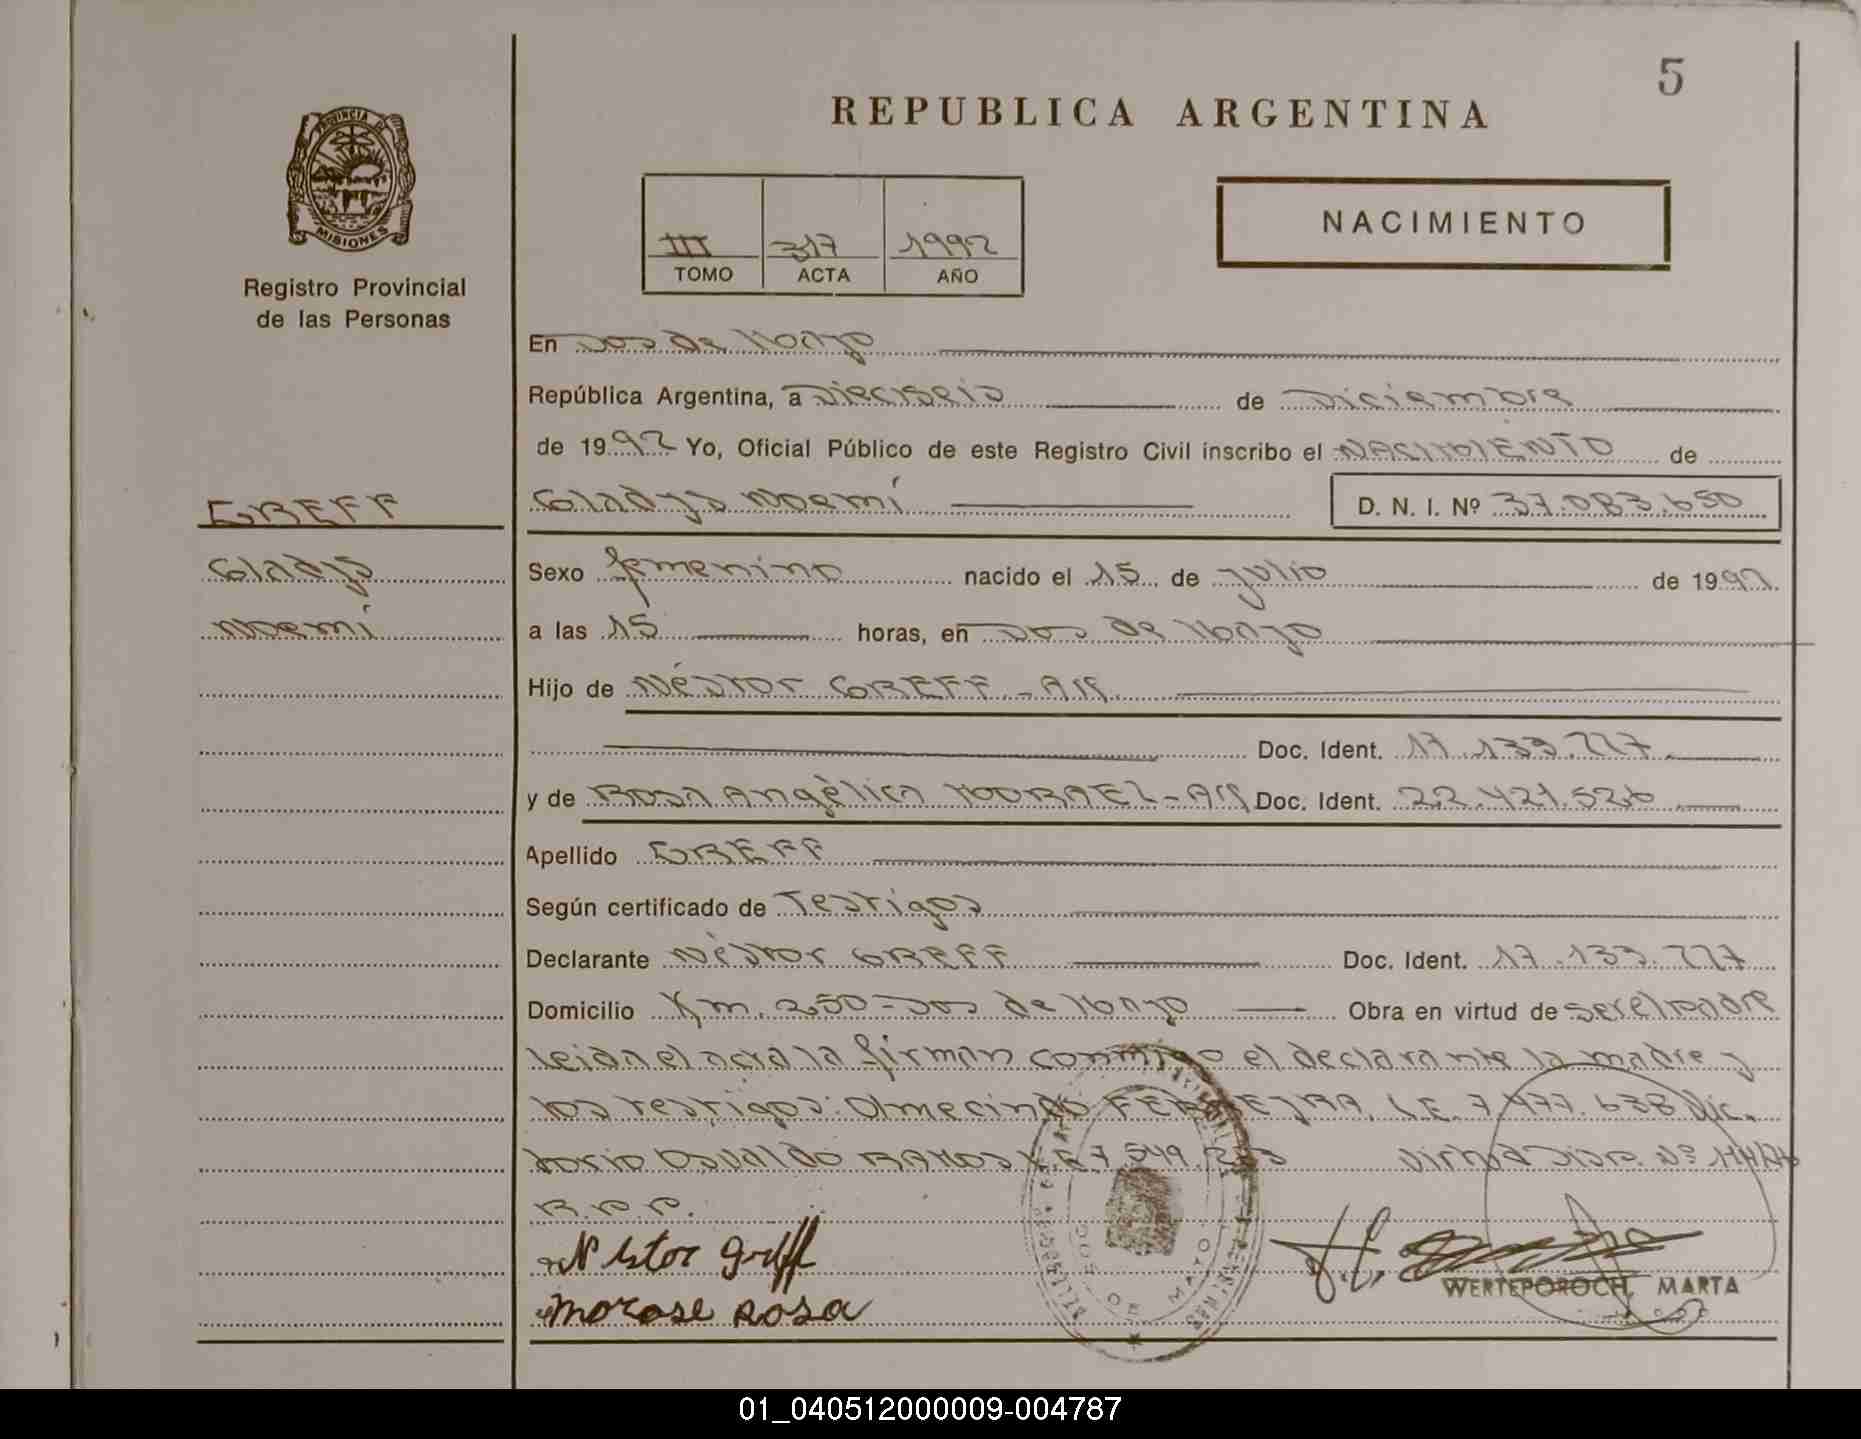 5
REPUBLICA ARGENTINA
PROVINCIA DE
MISIONES
Registro Provincial
de las Personas
III 317 1992
TOMO ACTA AÑO
NACIMIENTO
En Dos de Mayo
República Argentina, a Dieciseis de Diciembre
de 1992 Yo, Oficial Público de este Registro Civil inscribo el NACIMIENTO de
GREFF
Gladys Noemí D. N. I. Nº 37.083.650
Gladys
Sexo femenino nacido el 15 de julio de 1992
Noemí
a las 15 horas, en Dos de Mayo
Hijo de Néstor GREFF - AR
Doc. Ident. 17.133.727
y de ROSA Angélica - AR Doc. Ident. 22.421.526
Apellido GREFF
Según certificado de Testigos
Declarante Néstor GREFF Doc. Ident. 17.133.727
Domicilio Km. 250 - Dos de Mayo Obra en virtud de ser el padre
Leida el acta la firman conmigo el declarante la madre y
los testigos: Almecindo FERREJRA, L.E. 7.477.638 Vic.
torio Osvaldo RAMOS L.E. 7.549. Disp. Nº
R.P.P.
Nestor Greff
Morose Rosa
DOS DE MAYO
WERTEPOROCH, MARTA
01_040512000009-004787